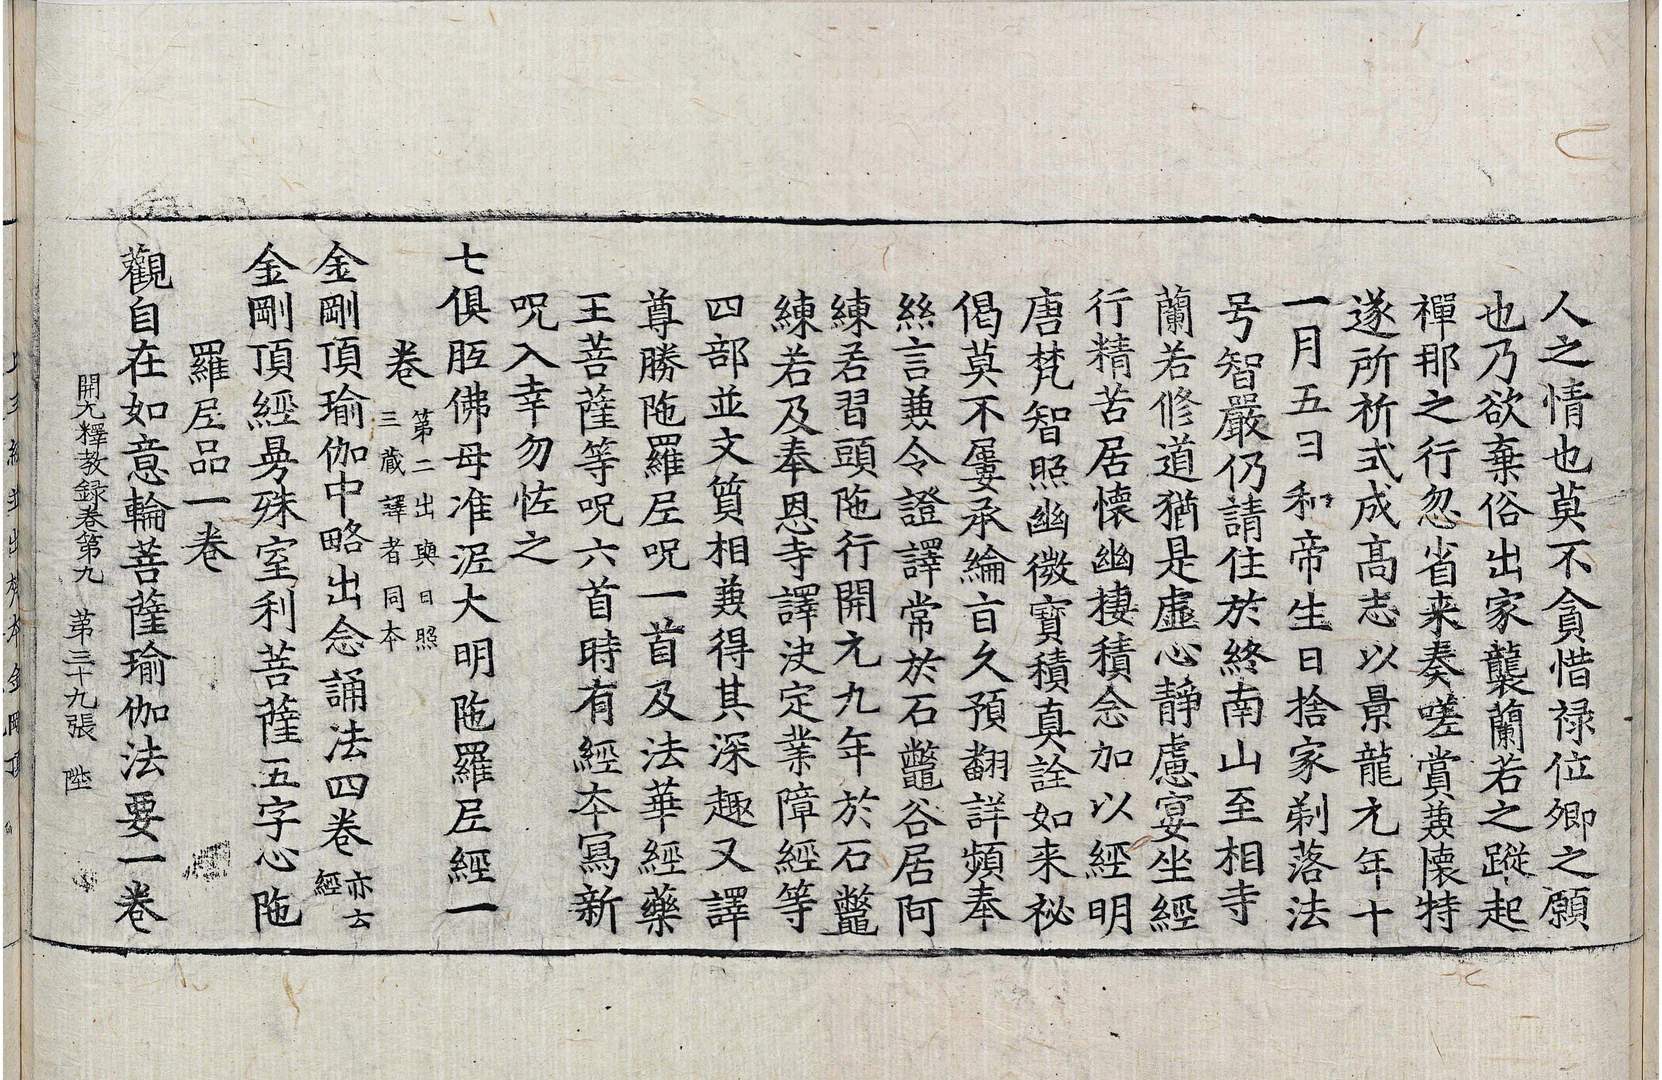 人之情也莫不貪惜禄位卿之願
也乃欲棄俗出家襲蘭若之蹤起
禪那之行忽省来奏嗟賞兼懐特
遂所祈式成髙志以景龍元年十
一月五日和帝生日捨家剃落法
号智嚴仍請住於終南山至相寺
蘭若修道猶是虚心靜慮宴坐經
行精苦居懐幽棲積念加以經明
唐梵智照幽微寳積真詮如来祕
偈莫不屢承綸㫖久預翻詳頻奉
絲言兼令證譯常於石鼈谷居阿
練若習頭陁行開元九年於石鼈
練若及奉恩寺譯決定業障經等
四部並文質相兼得其深趣又譯
尊勝陁羅尼呪一首及法華經藥
王菩薩等呪六首時有經本寫新
呪入幸勿恠之
七俱胝佛母准泥大明陁羅尼經一
卷 第二出與日照
三藏譯者同本
金剛頂瑜伽中略出念誦法四卷 亦云
經
金剛頂經曼殊室利菩薩五字心陁
羅尼品一卷
觀自在如意輪菩薩瑜伽法要一卷
開元釋教録卷第九 第三十九張 陛